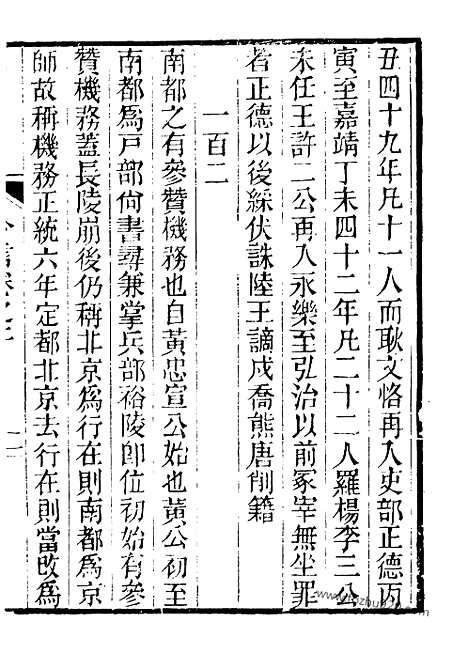 丑四十九年凡十一人而耿文恪再入吏部正德丙
寅至嘉靖丁未四十二年凡二十二人羅楊李三公
未任王許二公再入永樂至弘治以前冢宰無坐罪
者正德以後綵伏誅陸王謫戍喬熊唐削籍
一百二
南都之有參贊機務也自黃忠宣公始也黃公初至
南都爲戸部尙書尋兼掌兵部裕陵卽位初始有參
贊機務蓋長陵崩後仍稱北京爲行在則南都爲京
師故稱機務正統六年定都北京去行在則當改爲